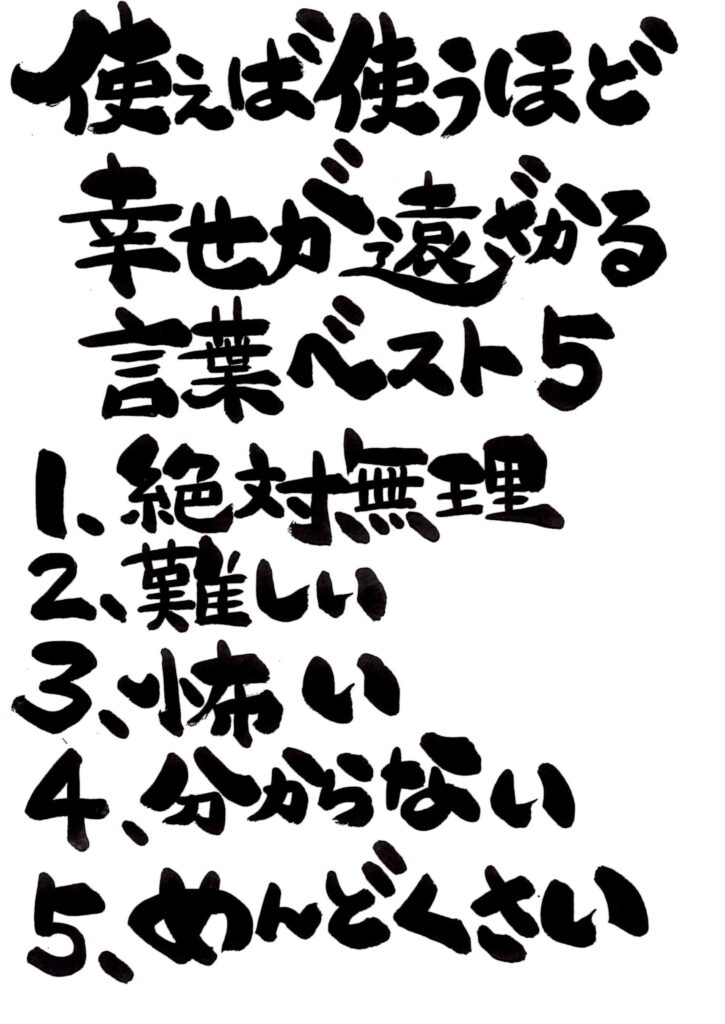 使えば使うほど
幸せが遠ざかる
言葉ベスト5
1、絶対無理
2、難しい
3、怖い
4、分からない
5、めんどくさい